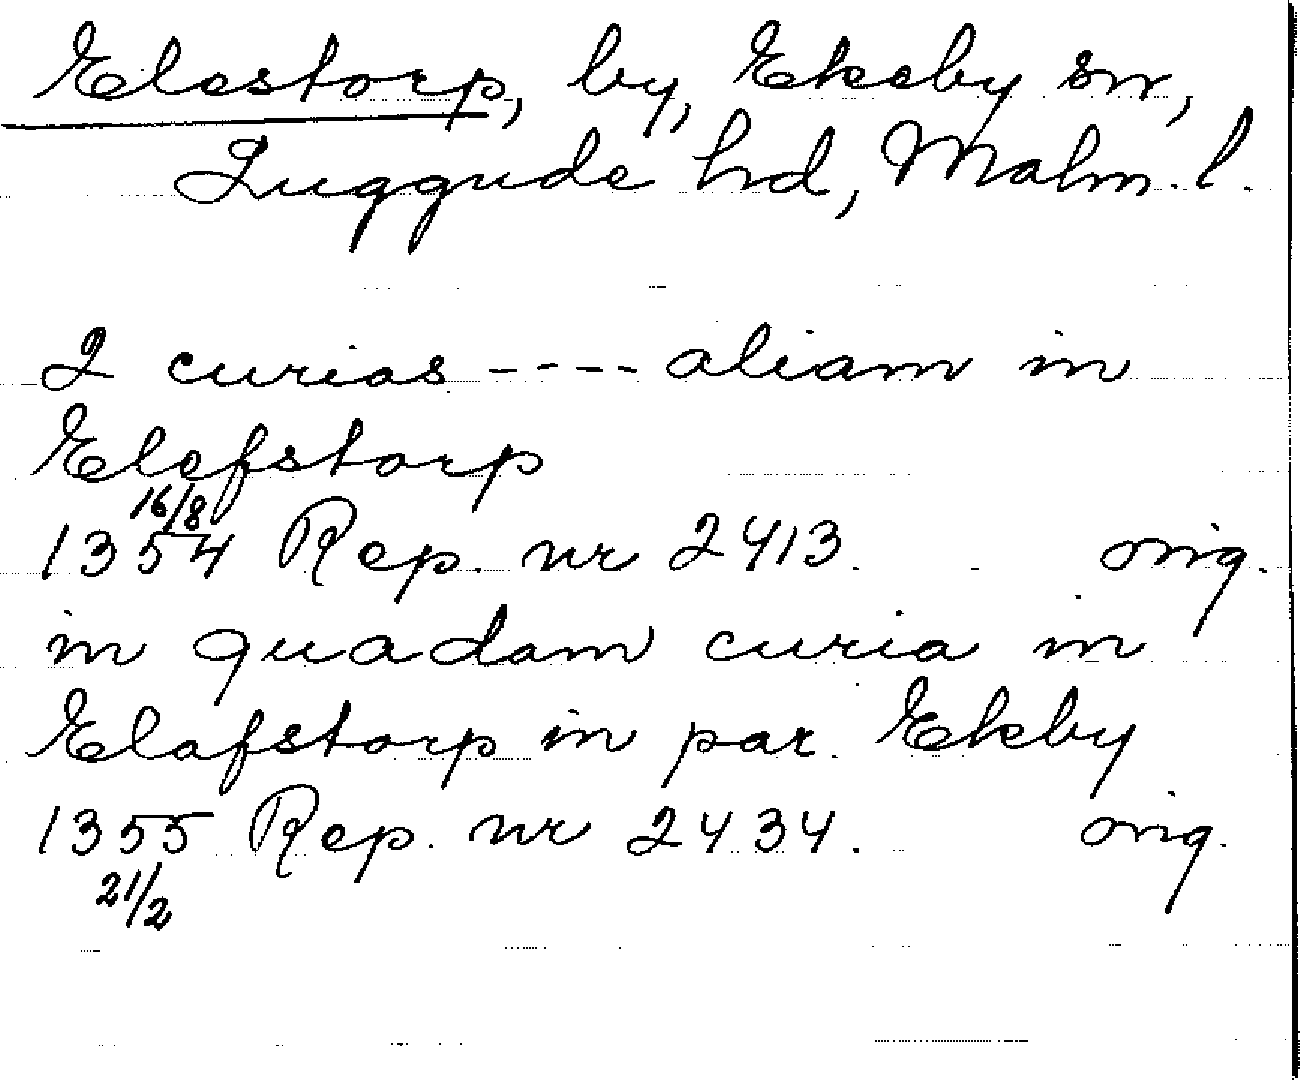 Elestorp, by, Ekeby sn,
Luggude hd, Malm. l.
2 curias ---- aliam in
Elefstorp
16/8
1354 Rep. nr 2413. orig.
in quadam curia in
Elafstorp in par. Ekby
1355 Rep. nr 2434. orig.
21/2